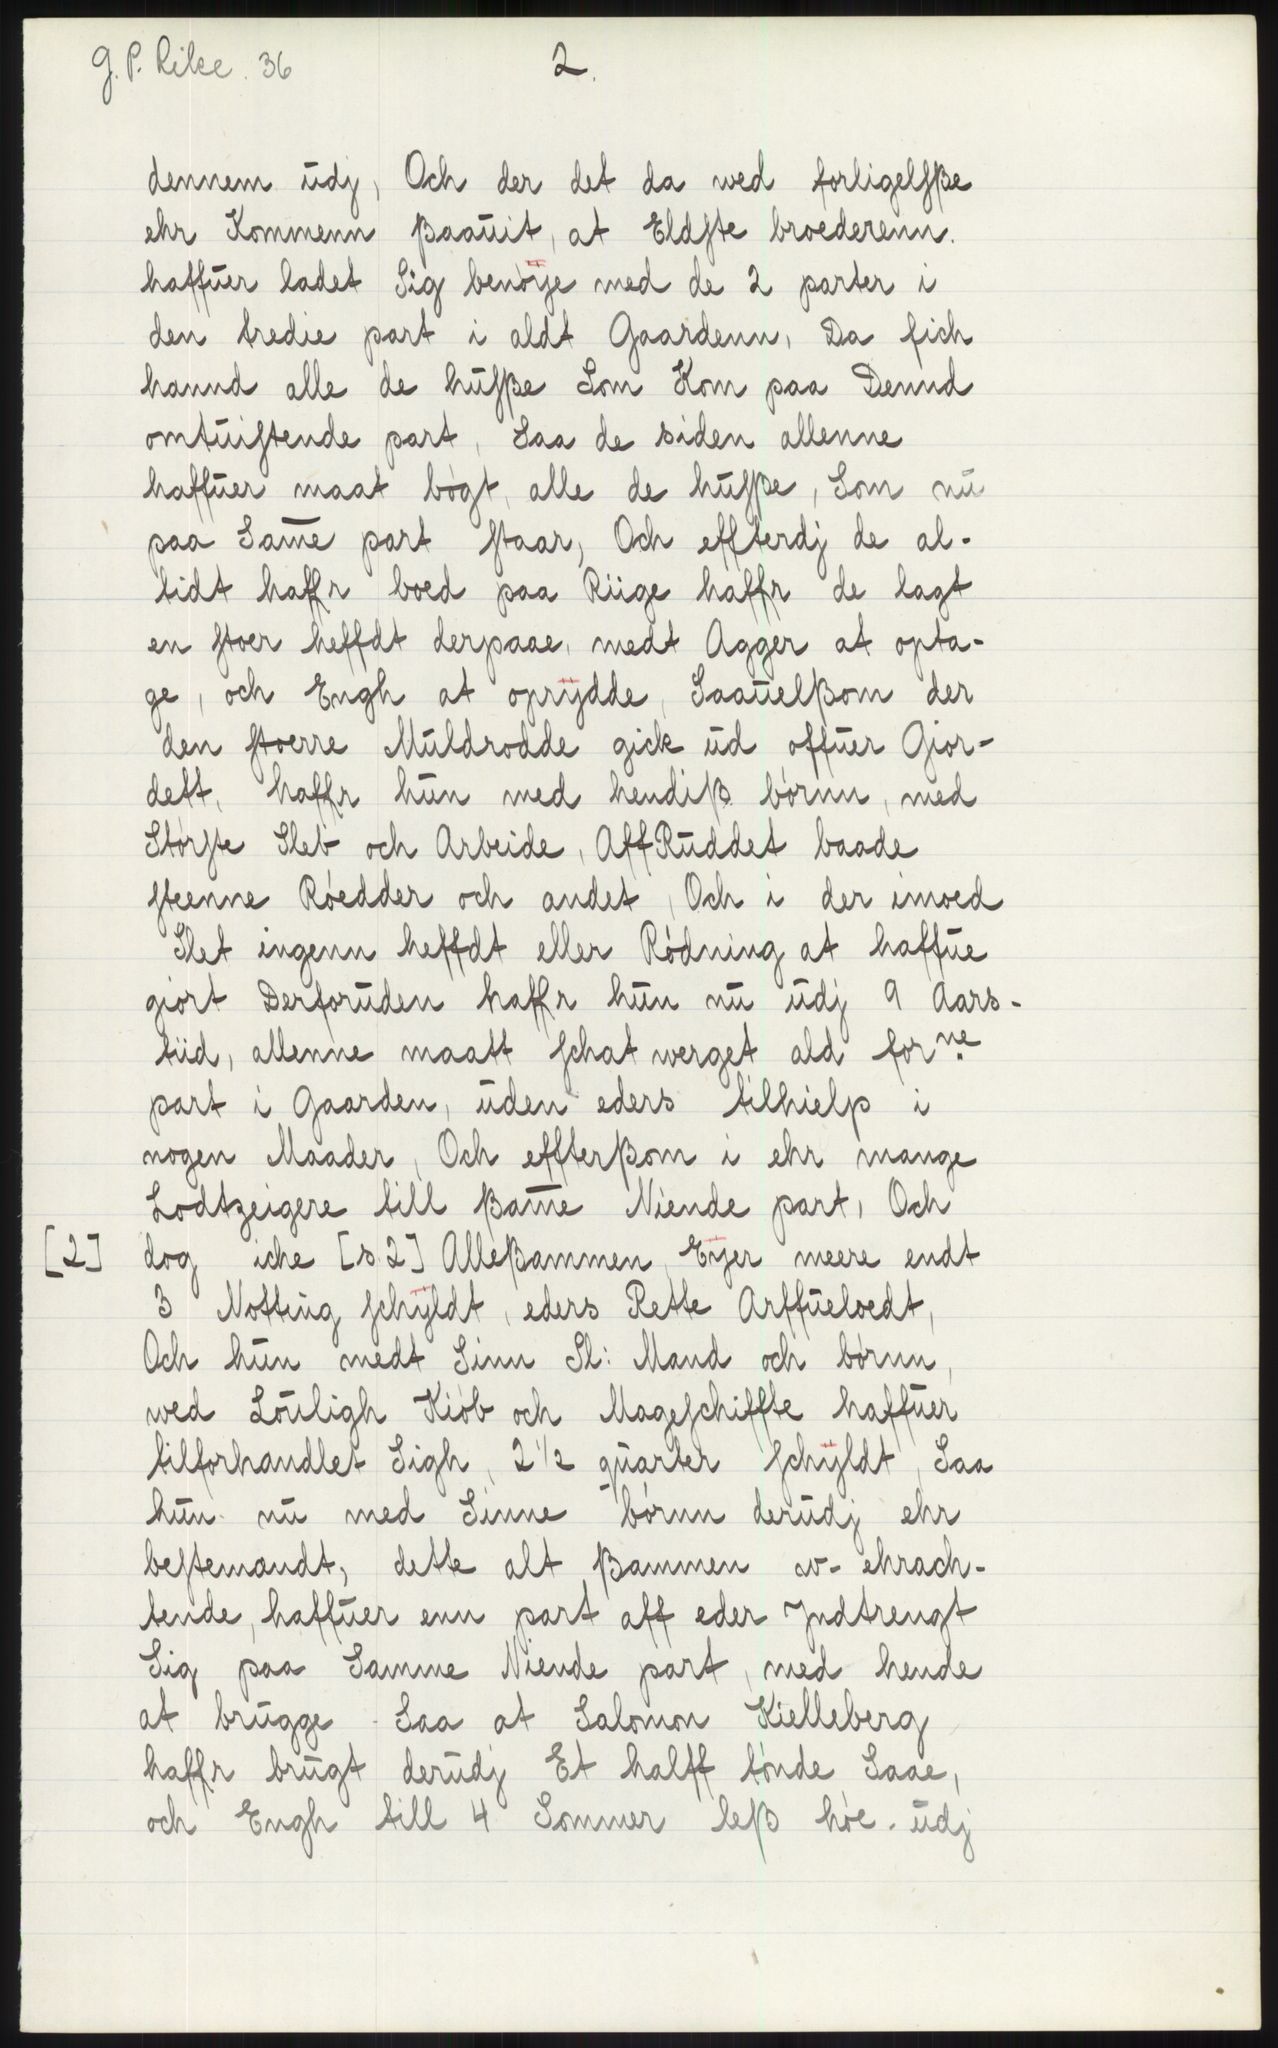 G. P. Rike. 36
2.
dennem ūdj, Och der det da wed forligelsße
ehr Kommenn ßaaūit, at Eldste broederenn.
haffūer ladet Sig benöÿe med de 2 parter i
den tredie part i aldt Gaardenn, Da fich
hannd alle de hūsße Som Kom paa Dennd
omtūistende part, Saa de siden allenne
haffūer maat bögt, alle de hūsße, Som nū
paa Sam̄e part staar, Och effterdj de al-
tidt haffr boed paa Riige haffr de lagt
en stoer heffdt derpaae, medt Agger at opta-
ge, och Engh at oprÿdde, Saaūelßom der
den stoerre Mūldrodde gick ūd offūer Gior-
dett, haffr hūn med hendiß börnn, med
Störste Sleb och Arbeide, AffRūddet baade
steenne Röedder och andet, Och i der imoed
Slet ingenn heffdt eller Rödning at haffūe
giört Derforūden haffr hūn nū ūdj 9 Aars-
tiid, allenne maatt schat werget ald forne
part i Gaarden, ūden eders tilhielp i
nogen Maader, Och effterßom i ehr mange
Lodtzeigere till ßam̄e Niende part, Och
[2] dog iche [s. 2] Alleßammen, Eÿer meere endt
3 Notting schÿldt, eders Rette Arffūeloedt,
Och hūn medt Sinn Sl: Mand och börnn,
wed Loūligh Kiöb och Mageschiffte haffūer
tilforhandlet Sigh, 2 1/2 qūarter schÿldt, Saa
hūn nū med Sinne börnn derūdj ehr
bestemandt, dette alt ßammen w-ehrach-
tende, haffūer enn part aff eder Jndtrengt
Sig paa Samme Niende part, med hende
at brūgge Saa at Salomon Kielleberg
haffr brūgt derūdj Et halff tönde Saae,
och Engh till 4 Sommer leß höe. ūdj